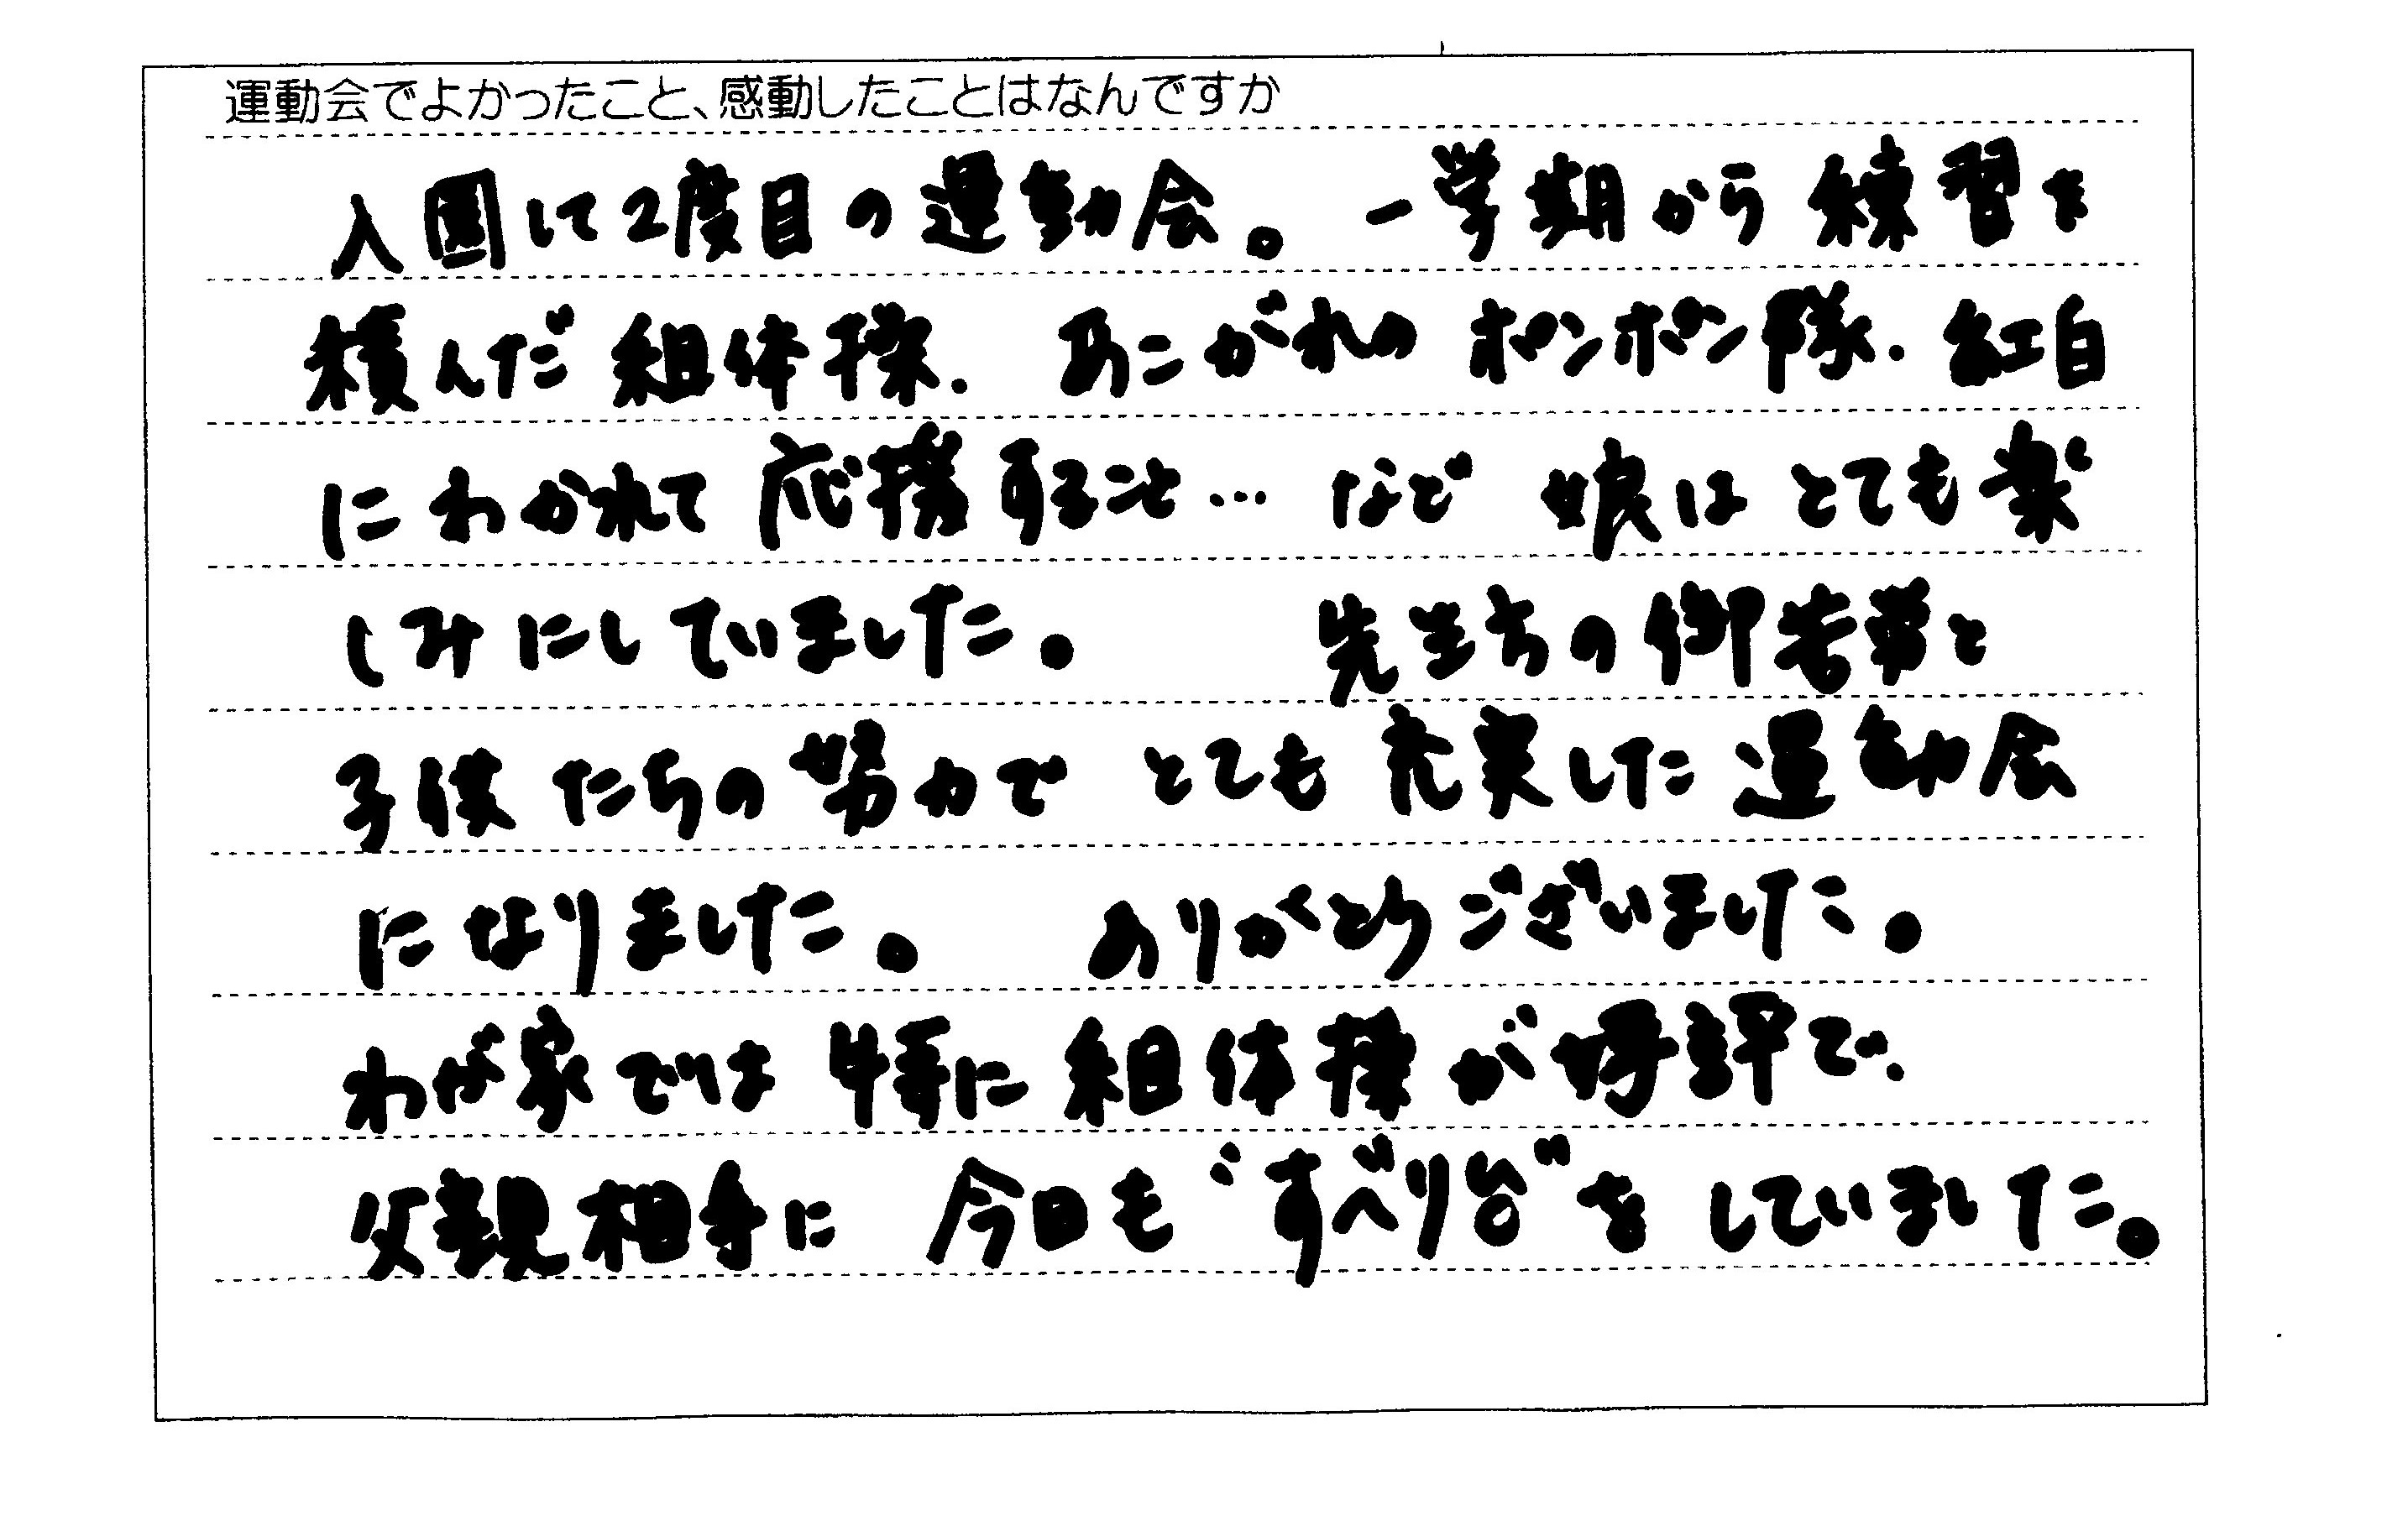 運動会でよかったこと、感動したことはなんですか
入園して2度目の運動会。一学期から練習を
積んだ組体操、あこがれのポンポン隊、紅白
にわかれて応援すること…など娘はとても楽
しみにしていました。先生方の御苦労と
子供たちの努力でとても充実した運動会
になりました。ありがとうございました。
わが家では特に組体操が好評で、
父親相手に今日も“すべり台”をしていました。